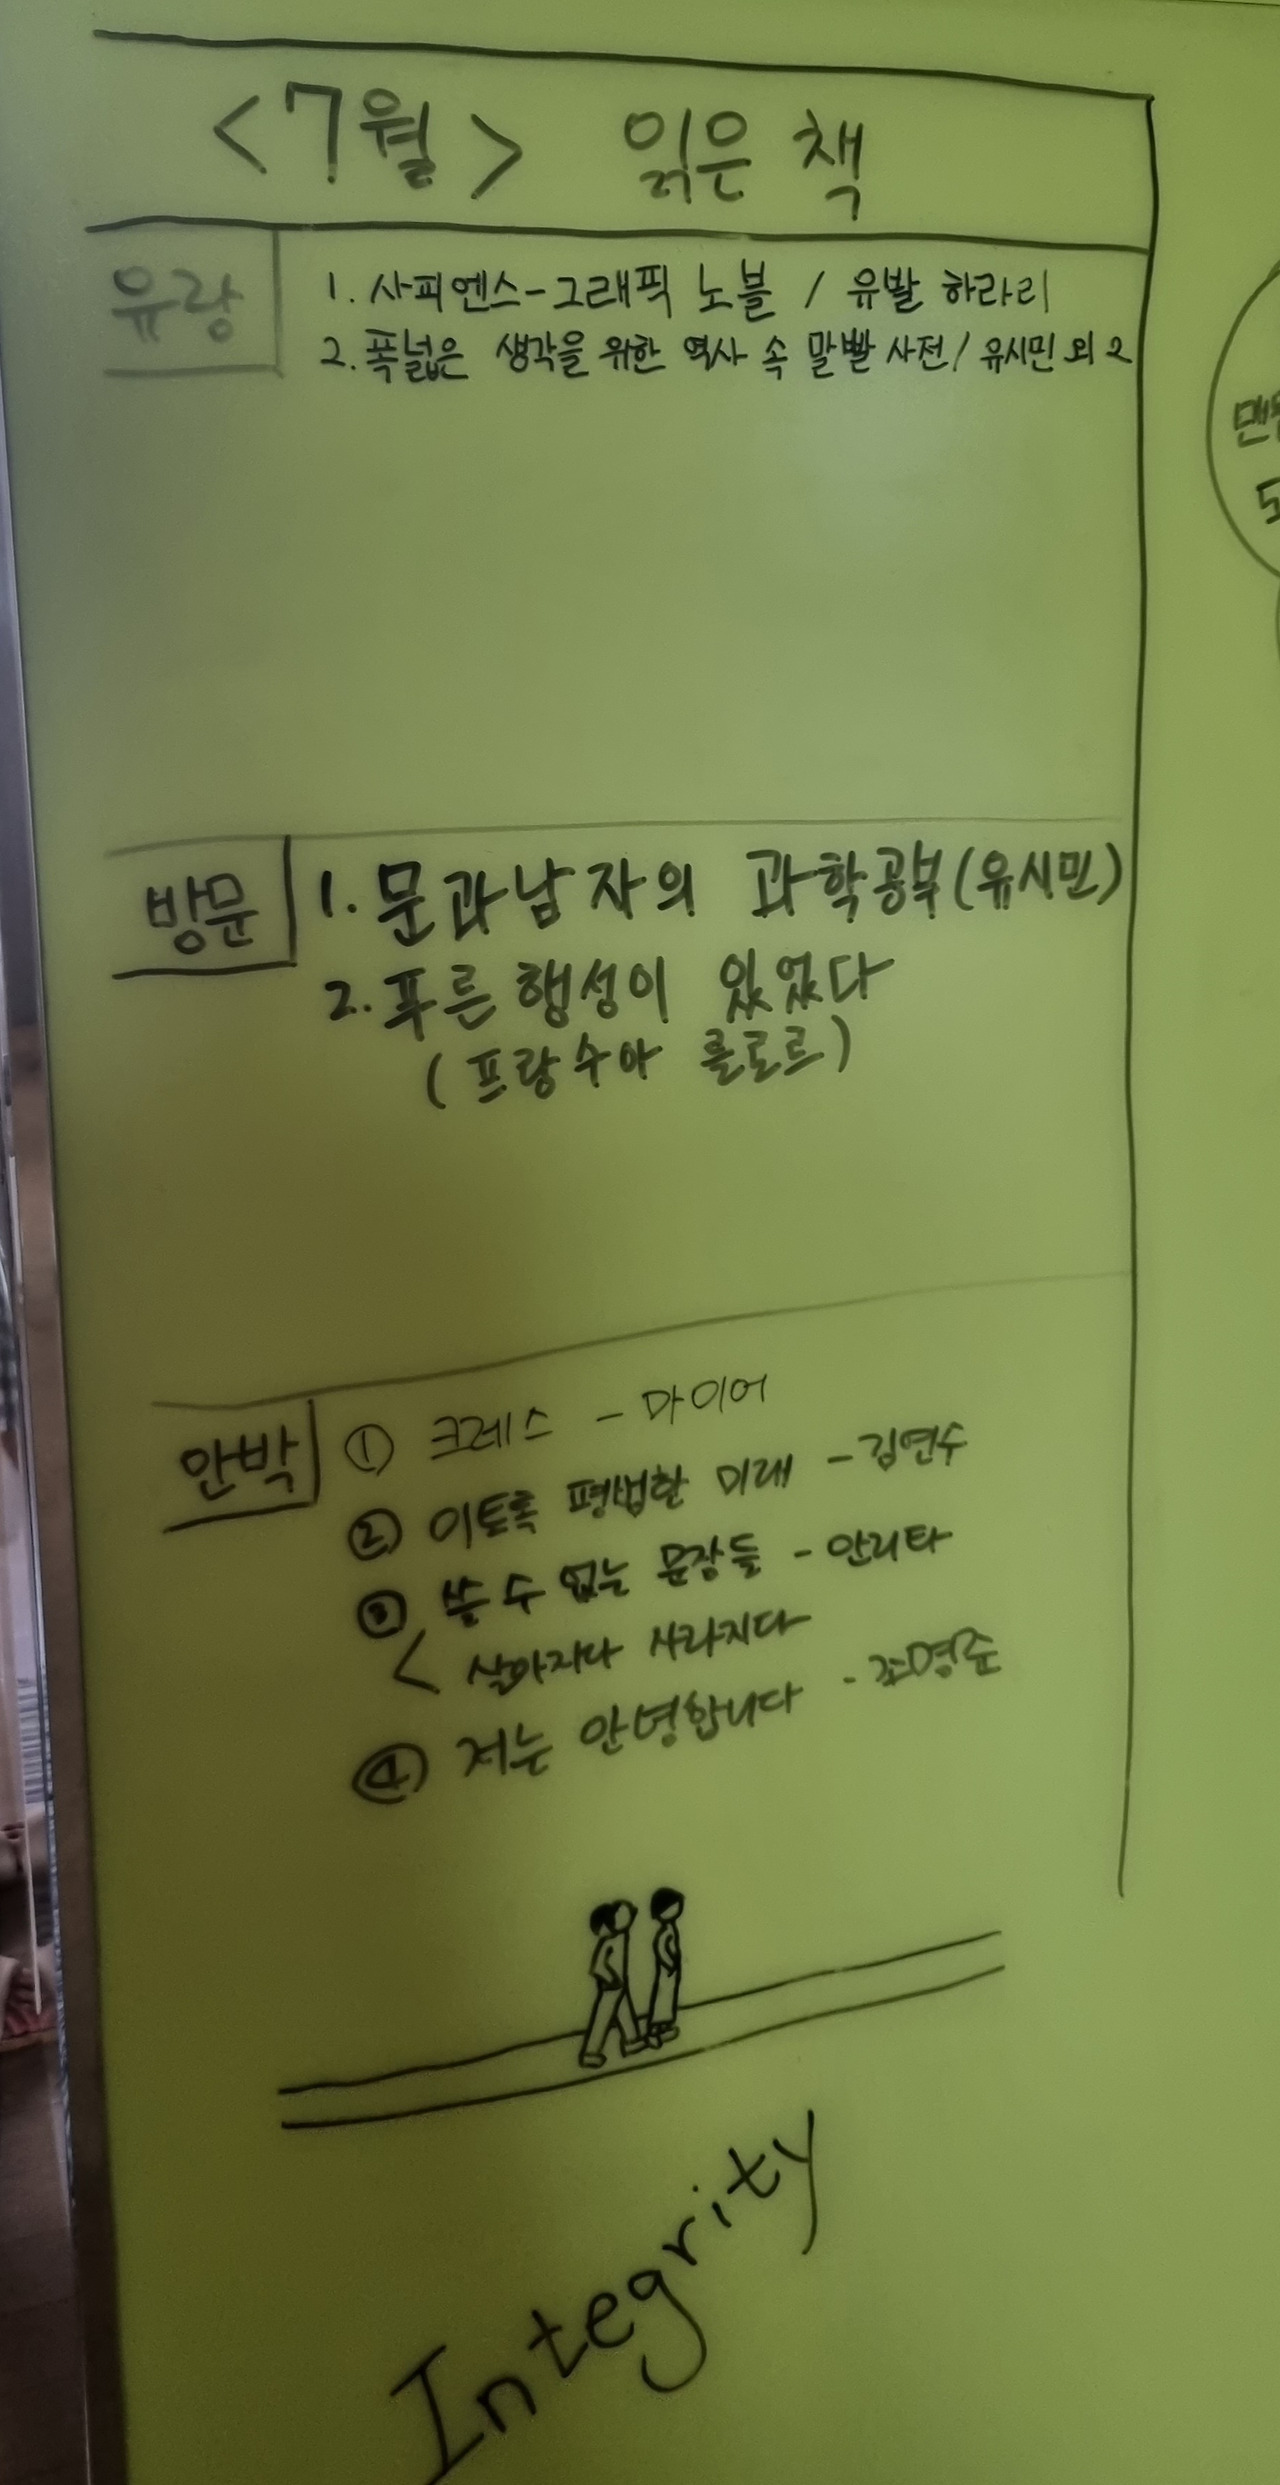 <7월> 읽은 책
유랑
1. 사피엔스-그래픽 노블 / 유발 하라리
2. 폭넓은 생각을 위한 역사 속 말빨 사전/ 유시민 외 2
방문
1. 문과남자의 과학공부(유시민)
2. 푸른 행성이 있었다
(프랑수아 를로르)
안박
① 크레스 - 마이어
② 이토록 평범한 미래 - 김연수
③ 쓸 수 없는 문장들 - 안리타
< 살아지다 사라지다
④ 저는 안녕합니다 - 조명준
Integrity